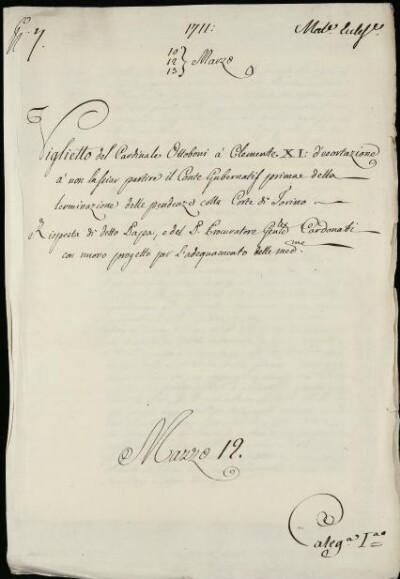 1711:
10
12
13 } Marzo
Viglietto del Cardinale Ottoboni à Clemente XI: d'esortazione
à non lasciar partire il Conte Gubernatis prima della
terminazione delle pendenze colla Corte di Torino
Risposta di detto Papa, e del P. Procuratore Gen.le Cardonati
con nuovo progetto per l'adequamento delle med.me
Marzo 12.
Categ.a I.a